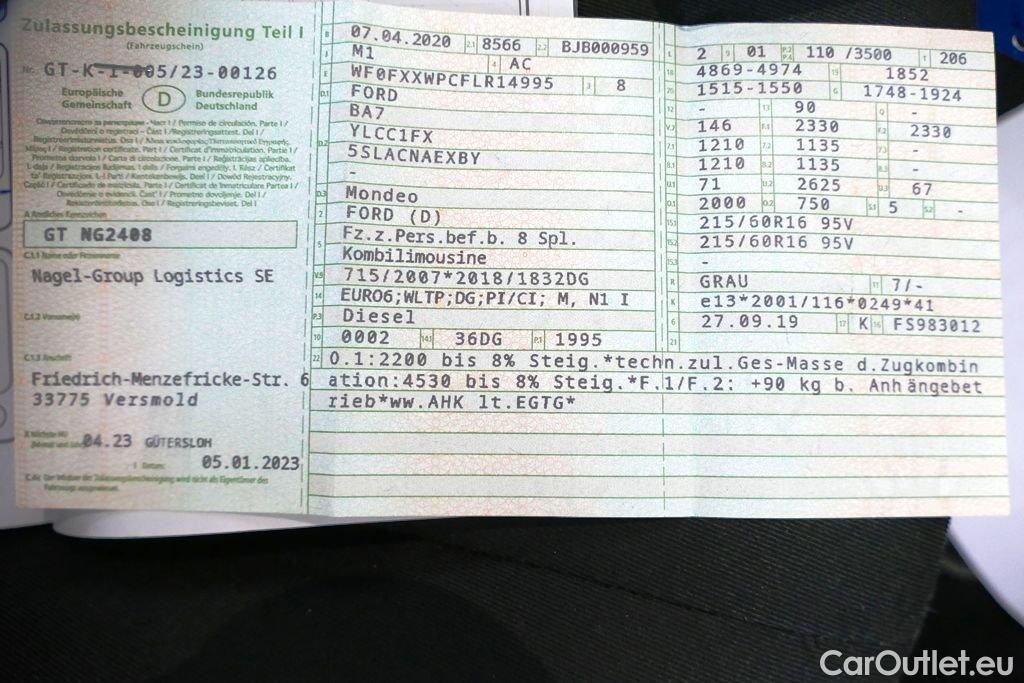 Zulassungsbescheinigung Teil I
(Fahrzeugschein)
Nr. GT-K-1-005/23-00126
Europäische Gemeinschaft
D
Bundesrepublik Deutschland
A Amtliches Kennzeichen
GT NG2408
C.1.1 Name oder Firmenname
Nagel-Group Logistics SE
C.1.2 Vorname(n)
C.1.3 Anschrift
Friedrich-Menzefricke-Str. 6
33775 Versmold
04.23 GÜTERSLOH
I Datum: 05.01.2023
C.4c Der Inhaber der Zulassungsbescheinigung wird nicht als Eigentümer des
Fahrzeugs ausgewiesen.
B 07.04.2020 2.1 8566 2.2 BJB000959
J M1 4 AC
E WF0FXXWPCFLR14995 3 8
D.1 FORD
BA7
D.2 YLCC1FX
5SLACNAEXBY
-
D.3 Mondeo
2 FORD (D)
5 Fz.z.Pers.bef.b. 8 Spl.
Kombilimousine
V.9 715/2007*2018/1832DG
14 EURO6;WLTP;DG;PI/CI; M, N1 I
P.3 Diesel
10 0002 14.1 36DG P.1 1995
L 2 9 01 P.2 P.4 110 /3500 T 206
18 4869-4974 19 1852
20 1515-1550 G 1748-1924
12 - 13 90 Q -
V.7 146 F.1 2330 F.2 2330
7.1 1210 7.2 1135 7.3 -
8.1 1210 8.2 1135 8.3 -
U.1 71 U.2 2625 U.3 67
O.1 2000 O.2 750 S.1 5 S.2 -
15.1 215/60R16 95V
15.2 215/60R16 95V
15.3 -
R GRAU 11 7/-
K e13*2001/116*0249*41
6 27.09.19 17 K 16 FS983012
21
22 O.1:2200 bis 8% Steig.*techn.zul.Ges-Masse d.Zugkombin
ation:4530 bis 8% Steig.*F.1/F.2: +90 kg b. Anhängebet
rieb*ww.AHK lt.EGTG*
CarOutlet.eu